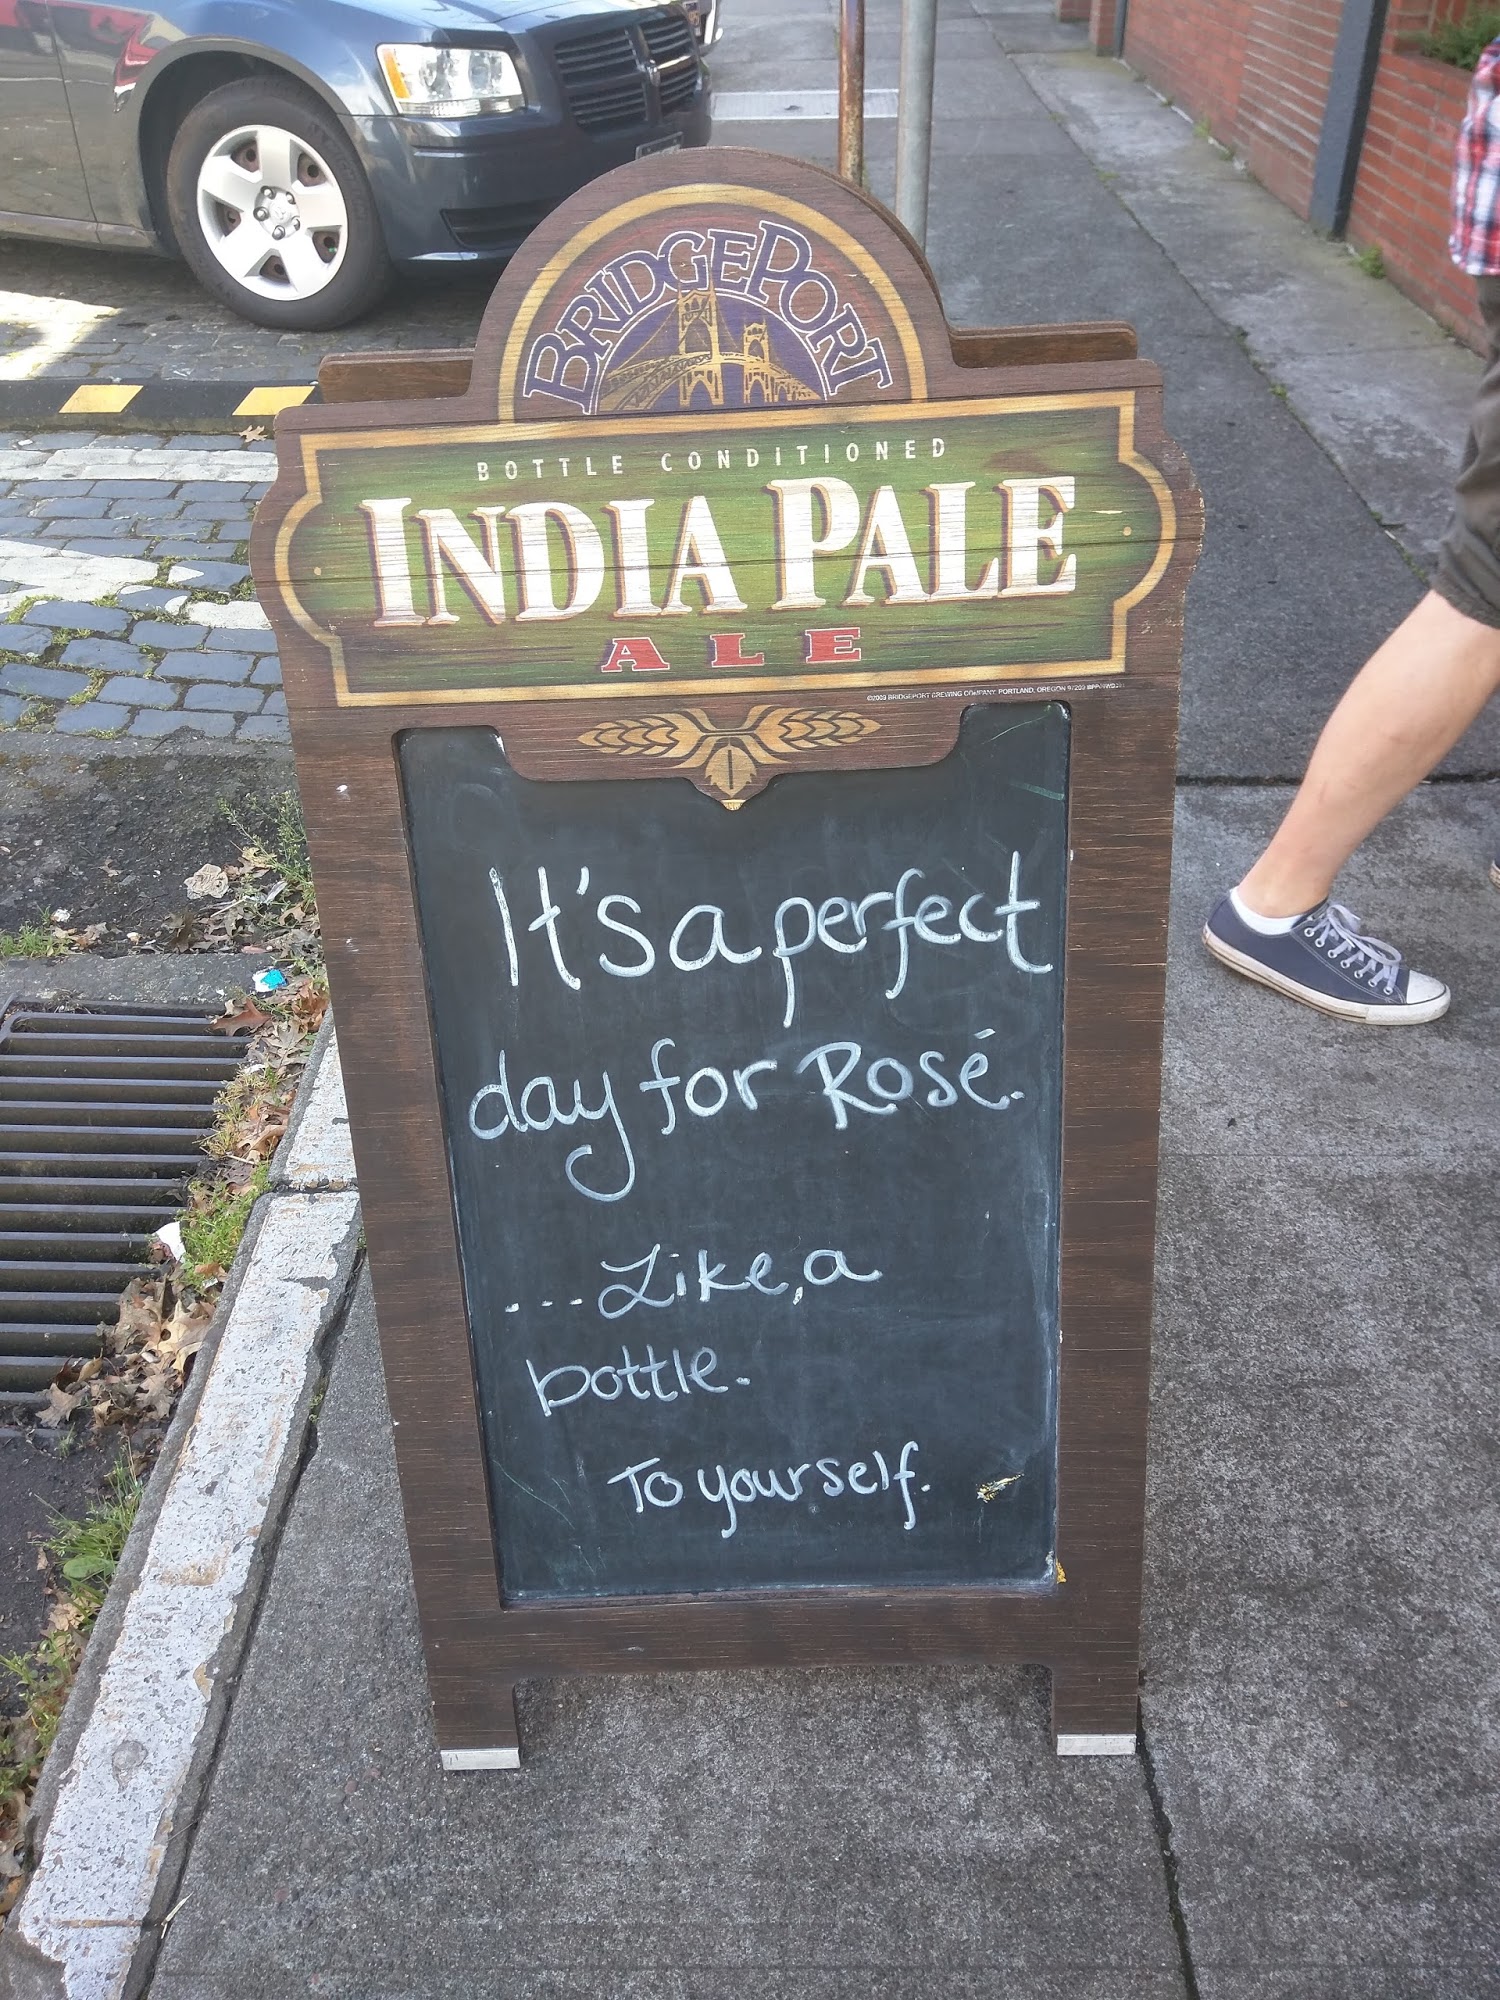 BRIDGEPORT
BOTTLE CONDITIONED
INDIA PALE
ALE
©2003 BRIDGEPORT BREWING COMPANY, PORTLAND, OREGON 97209
It's a perfect
day for Rosé.
... Like, a
bottle.
To yourself.